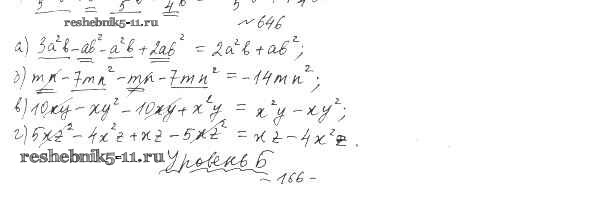 reshebnik5-11.ru
~646
а) 3a²b - ab² - a²b + 2ab² = 2a²b + ab²;
б) mn - 7mn² - mn - 7mn² = -14mn²;
в) 10xy - xy² - 10xy + x²y = x²y - xy²;
г) 5xz² - 4x²z + xz - 5xz² = xz - 4x²z.
reshebnik5-11.ru
Уровень Б
- 166 -